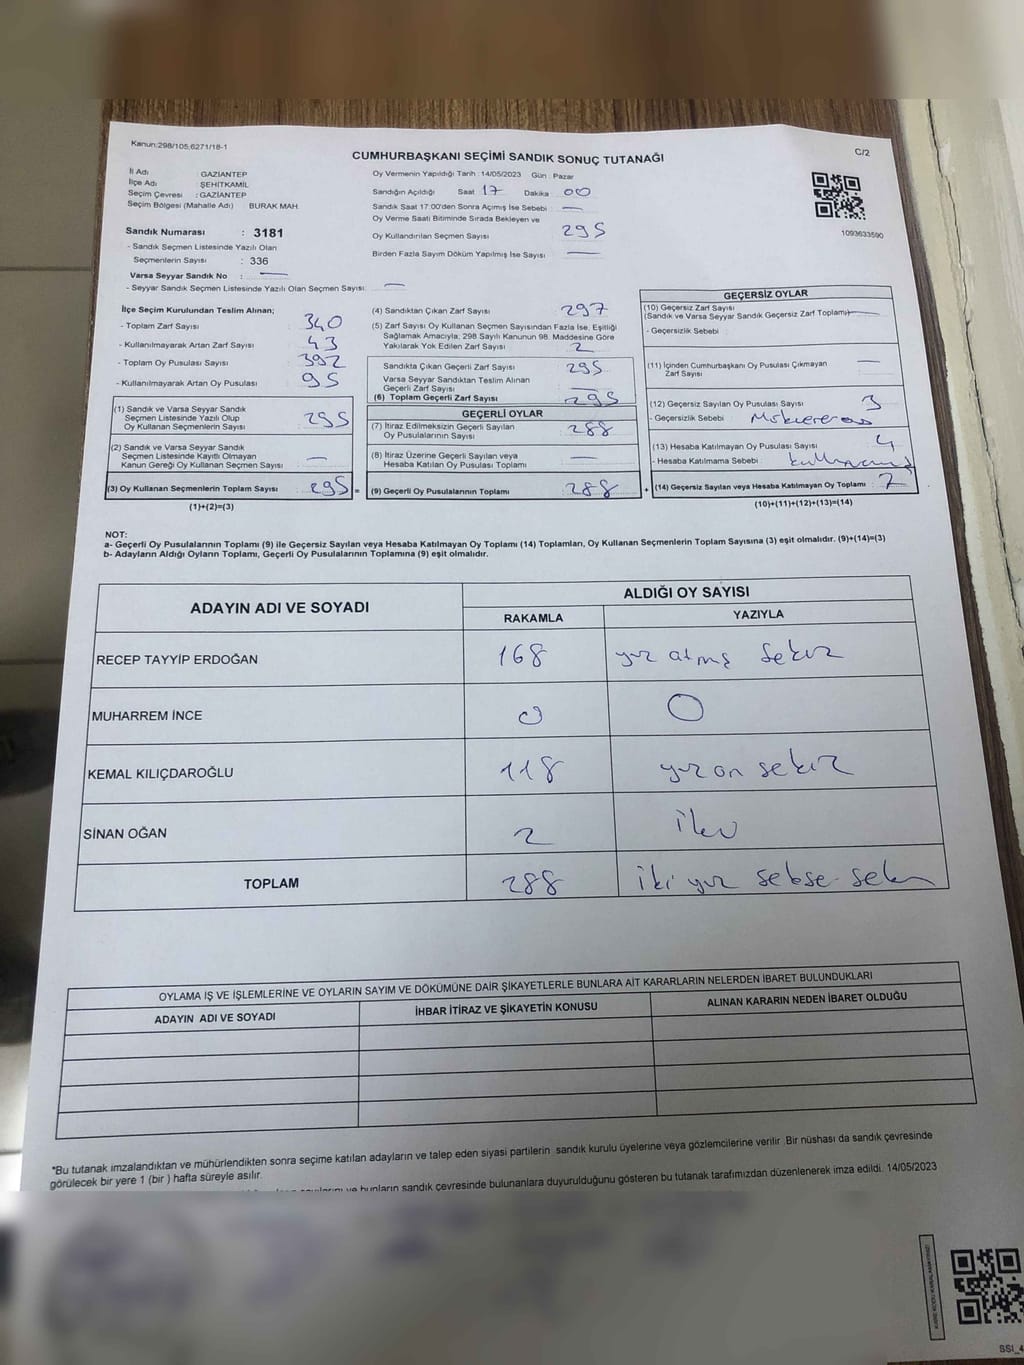 Kanun:298/105,6271/18-1
C/2
CUMHURBAŞKANI SEÇİMİ SANDIK SONUÇ TUTANAĞI
İl Adı : GAZİANTEP
İlçe Adı ŞEHİTKAMİL
Seçim Çevresi : GAZİANTEP
Seçim Bölgesi (Mahalle Adı) BURAK MAH.
Sandık Numarası : 3181
- Sandık Seçmen Listesinde Yazılı Olan
Seçmenlerin Sayısı : 336
Varsa Seyyar Sandık No : —
- Seyyar Sandık Seçmen Listesinde Yazılı Olan Seçmen Sayısı: —
Oy Vermenin Yapıldığı Tarih :14/05/2023 Gün : Pazar
Sandığın Açıldığı Saat 17 Dakika 00
Sandık Saat 17:00'den Sonra Açımış İse Sebebi —
Oy Verme Saati Bitiminde Sırada Bekleyen ve
Oy Kullandırılan Seçmen Sayısı 295
Birden Fazla Sayım Döküm Yapılmış İse Sayısı —
1093633590
İlçe Seçim Kurulundan Teslim Alınan;
- Toplam Zarf Sayısı 340
- Kullanılmayarak Artan Zarf Sayısı 43
- Toplam Oy Pusulası Sayısı 392
- Kullanılmayarak Artan Oy Pusulası 95
(1) Sandık ve Varsa Seyyar Sandık
Seçmen Listesinde Yazılı Olup
Oy Kullanan Seçmenlerin Sayısı 295
(2) Sandık ve Varsa Seyyar Sandık
Seçmen Listesinde Kayıtlı Olmayan
Kanun Gereği Oy Kullanan Seçmen Sayısı —
(3) Oy Kullanan Seçmenlerin Toplam Sayısı 295 =
(1)+(2)=(3)
(4) Sandıktan Çıkan Zarf Sayısı 297
(5) Zarf Sayısı Oy Kullanan Seçmen Sayısından Fazla İse, Eşitliği
Sağlamak Amacıyla; 298 Sayılı Kanunun 98. Maddesine Göre
Yakılarak Yok Edilen Zarf Sayısı 2
Sandıkta Çıkan Geçerli Zarf Sayısı 295
Varsa Seyyar Sandıktan Teslim Alınan
Geçerli Zarf Sayısı —
(6) Toplam Geçerli Zarf Sayısı 295
GEÇERLİ OYLAR
(7) İtiraz Edilmeksizin Geçerli Sayılan
Oy Pusulalarının Sayısı 288
(8) İtiraz Üzerine Geçerli Sayılan veya
Hesaba Katılan Oy Pusulası Toplamı —
(9) Geçerli Oy Pusulalarının Toplamı 288 +
GEÇERSİZ OYLAR
(10) Geçersiz Zarf Sayısı
(Sandık ve Varsa Seyyar Sandık Geçersiz Zarf Toplamı) —
- Geçersizlik Sebebi —
(11) İçinden Cumhurbaşkanı Oy Pusulası Çıkmayan
Zarf Sayısı —
(12) Geçersiz Sayılan Oy Pusulası Sayısı 3
- Geçersizlik Sebebi
(13) Hesaba Katılmayan Oy Pusulası Sayısı 4
- Hesaba Katılmama Sebebi
(14) Geçersiz Sayılan veya Hesaba Katılmayan Oy Toplamı : 7
(10)+(11)+(12)+(13)=(14)
NOT:
a- Geçerli Oy Pusulalarının Toplamı (9) ile Geçersiz Sayılan veya Hesaba Katılmayan Oy Toplamı (14) Toplamları, Oy Kullanan Seçmenlerin Toplam Sayısına (3) eşit olmalıdır. (9)+(14)=(3)
b- Adayların Aldığı Oyların Toplamı, Geçerli Oy Pusulalarının Toplamına (9) eşit olmalıdır.
ADAYIN ADI VE SOYADI ALDIĞI OY SAYISI
RAKAMLA YAZIYLA
RECEP TAYYİP ERDOĞAN 168 yüz atmış sekiz
MUHARREM İNCE 0 0
KEMAL KILIÇDAROĞLU 118 yüz on sekiz
SİNAN OĞAN 2 iki
TOPLAM 288 iki yüz sekse sekiz
OYLAMA İŞ VE İŞLEMLERİNE VE OYLARIN SAYIM VE DÖKÜMÜNE DAİR ŞİKAYETLERLE BUNLARA AİT KARARLARIN NELERDEN İBARET BULUNDUKLARI
ADAYIN ADI VE SOYADI İHBAR İTİRAZ VE ŞİKAYETİN KONUSU ALINAN KARARIN NEDEN İBARET OLDUĞU
*Bu tutanak imzalandıktan ve mühürlendikten sonra seçime katılan adayların ve talep eden siyasi partilerin sandık kurulu üyelerine veya gözlemcilerine verilir .Bir nüshası da sandık çevresinde
görülecek bir yere 1 (bir ) hafta süreyle asılır.
ve bunların sandık çevresinde bulunanlara duyurulduğunu gösteren bu tutanak tarafımızdan düzenlenerek imza edildi. 14/05/2023